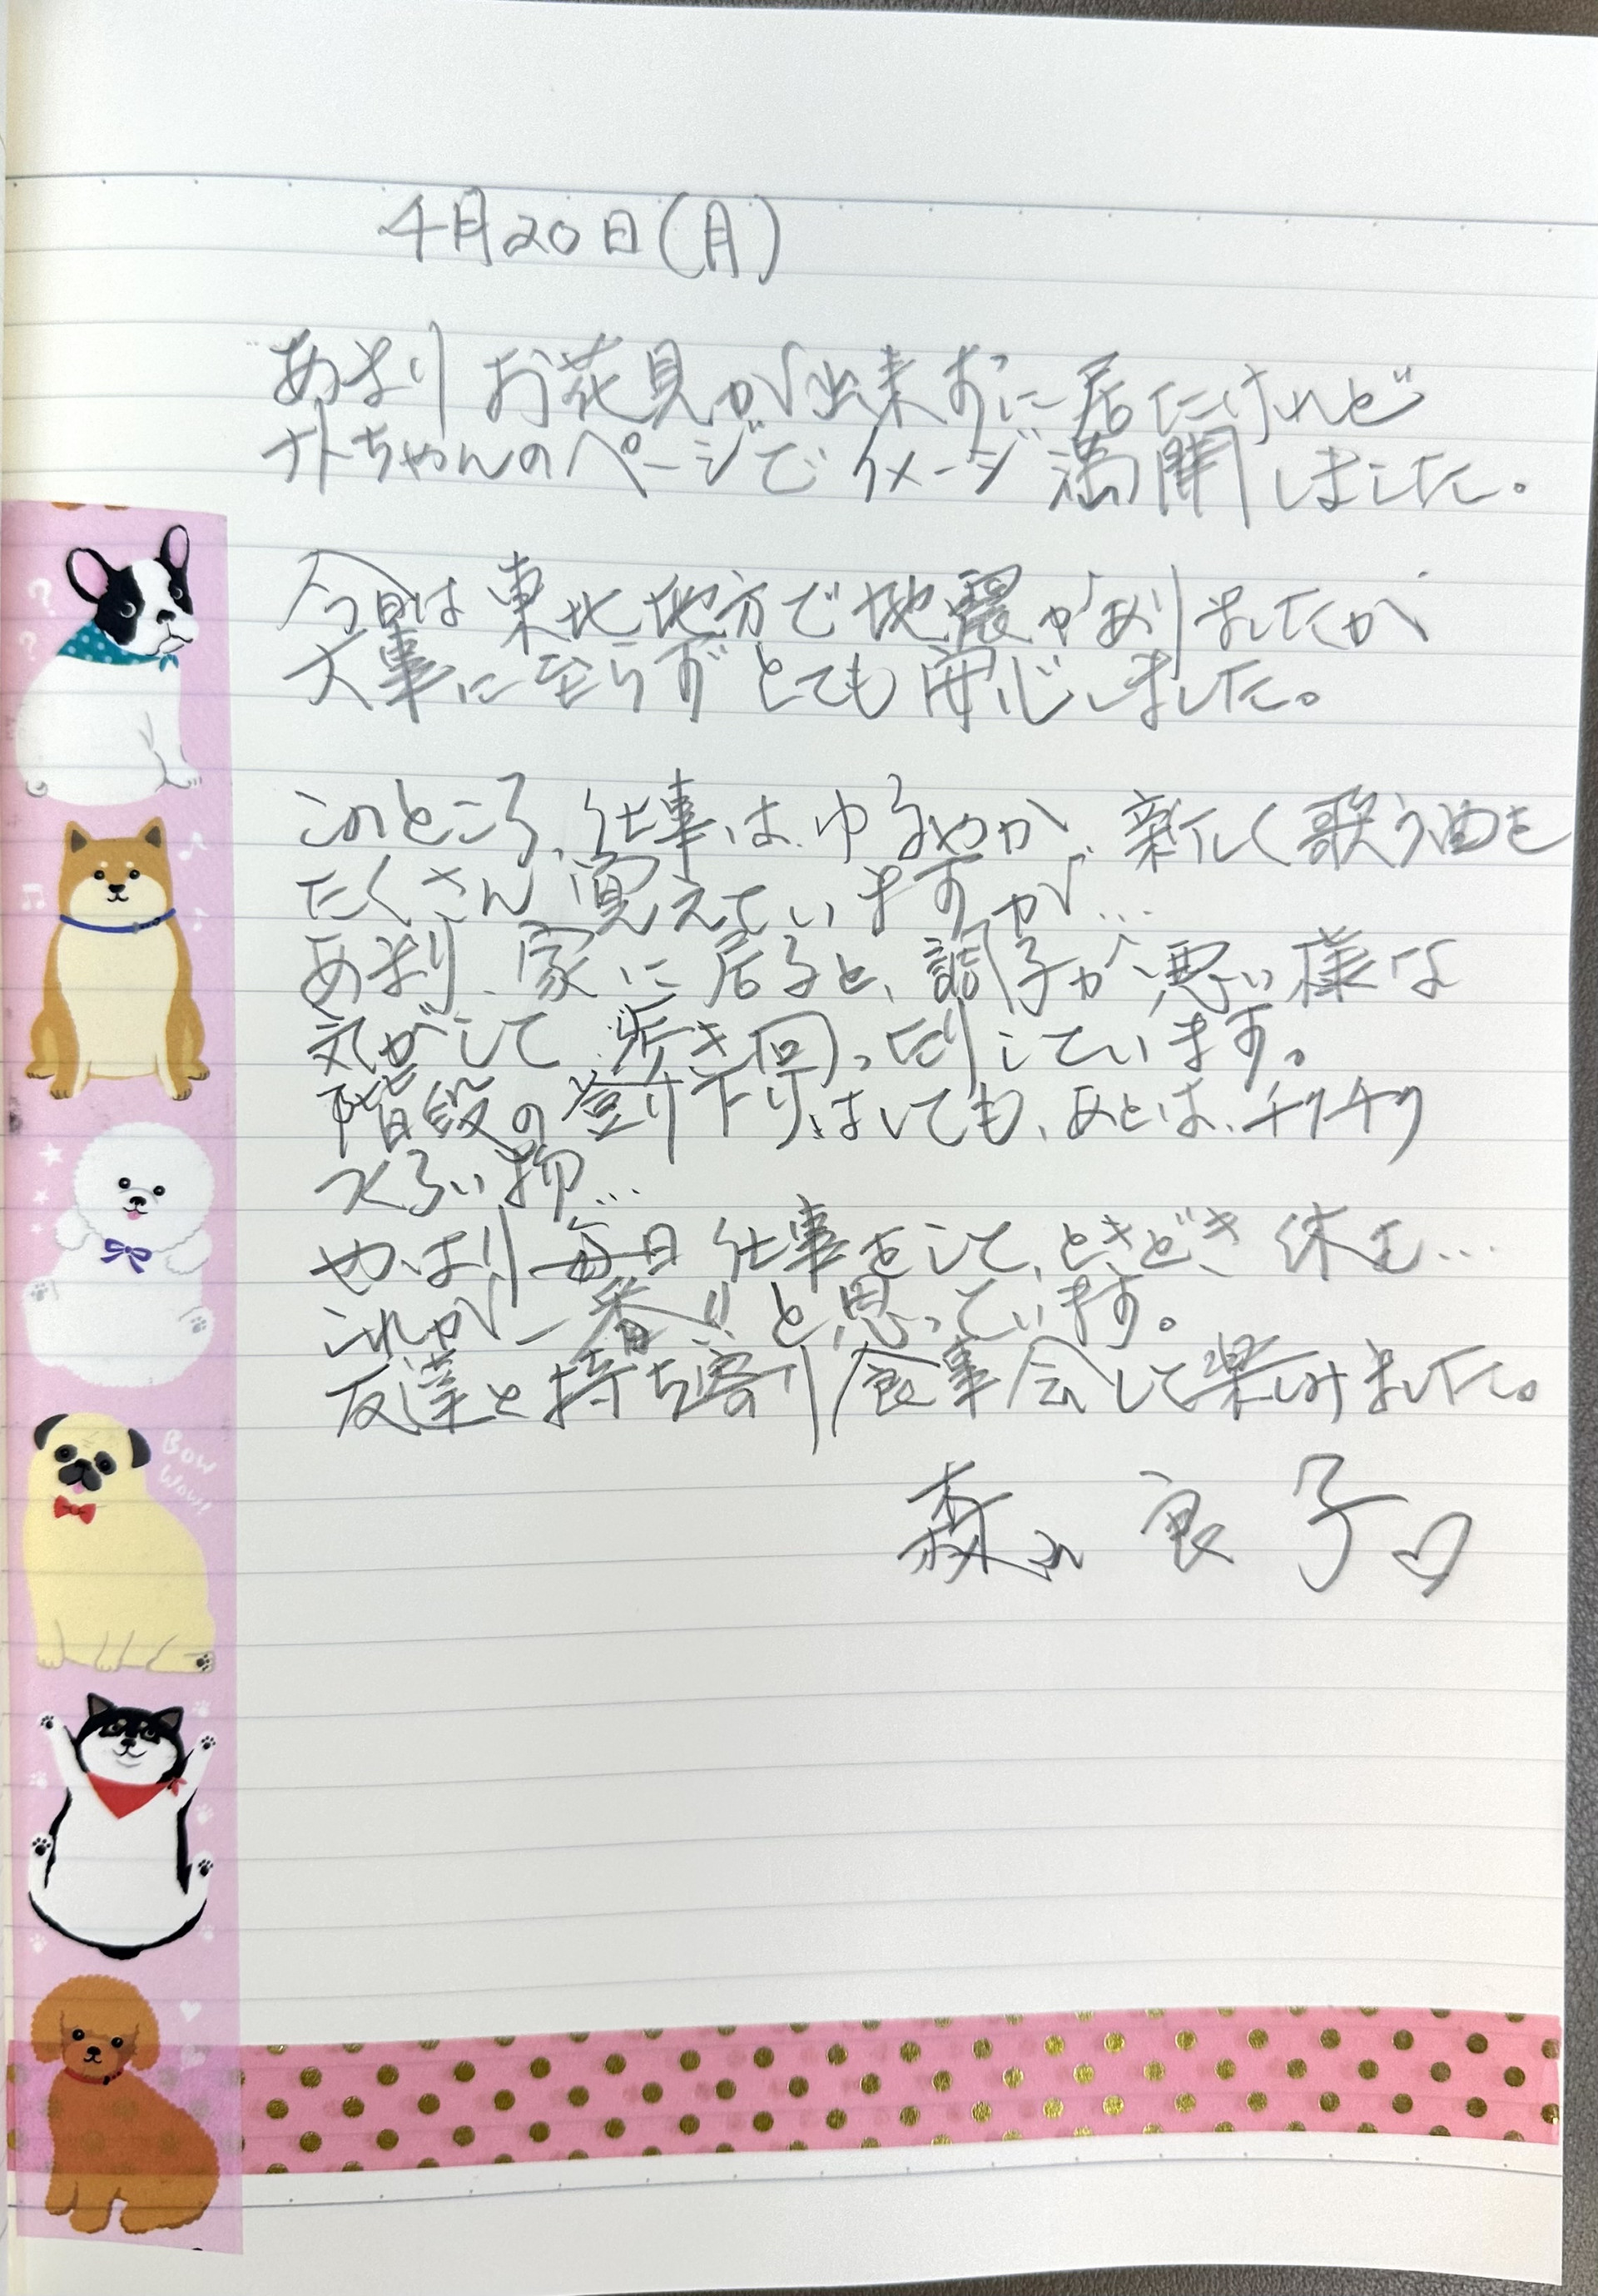 4月20日(月)
あまりお花見が出来ずに居たけれど
ナトちゃんのページでイメージ満開しました。
今日は東北地方で地震がありましたが
大事に至らずとても安心しました。
このところ、仕事は、ゆるやか、新しく歌う曲を
たくさん覚えていますが…
あまり、家に居ると、調子が悪い様な
気がして歩き回ったりしています。
階段の登り下りはしても、あとは、チクチク
つくろい物…
やはり毎日仕事をして、ときどき休む…
これが一番!!と思っています。
友達と持ち寄り食事会して楽しみました。
森山良子♡
? ?
BOW
WOW!